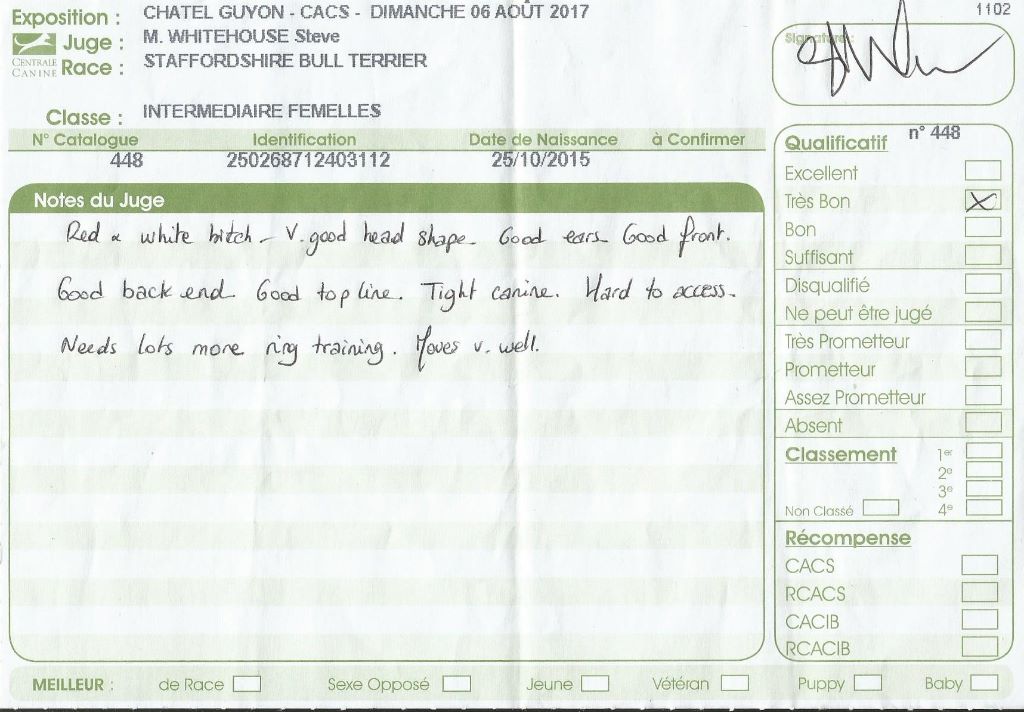 Exposition : CHATEL GUYON - CACS - DIMANCHE 06 AOÛT 2017
1102
CENTRALE CANINE
Juge : M. WHITEHOUSE Steve
Race : STAFFORDSHIRE BULL TERRIER
Signature :
Classe : INTERMEDIAIRE FEMELLES
N° Catalogue Identification Date de Naissance à Confirmer
448 250268712403112 25/10/2015
Notes du Juge
Red & white bitch - V. good head shape. Good ears. Good front.
Good back end. Good top line. Tight canine. Hard to access.
Needs lots more ring training. Moves v. well.
Qualificatif n° 448
Excellent
Très Bon X
Bon
Suffisant
Disqualifié
Ne peut être jugé
Très Prometteur
Prometteur
Assez Prometteur
Absent
Classement 1er
2e
3e
Non Classé 4e
Récompense
CACS
RCACS
CACIB
RCACIB
MEILLEUR : de Race Sexe Opposé Jeune Vétéran Puppy Baby